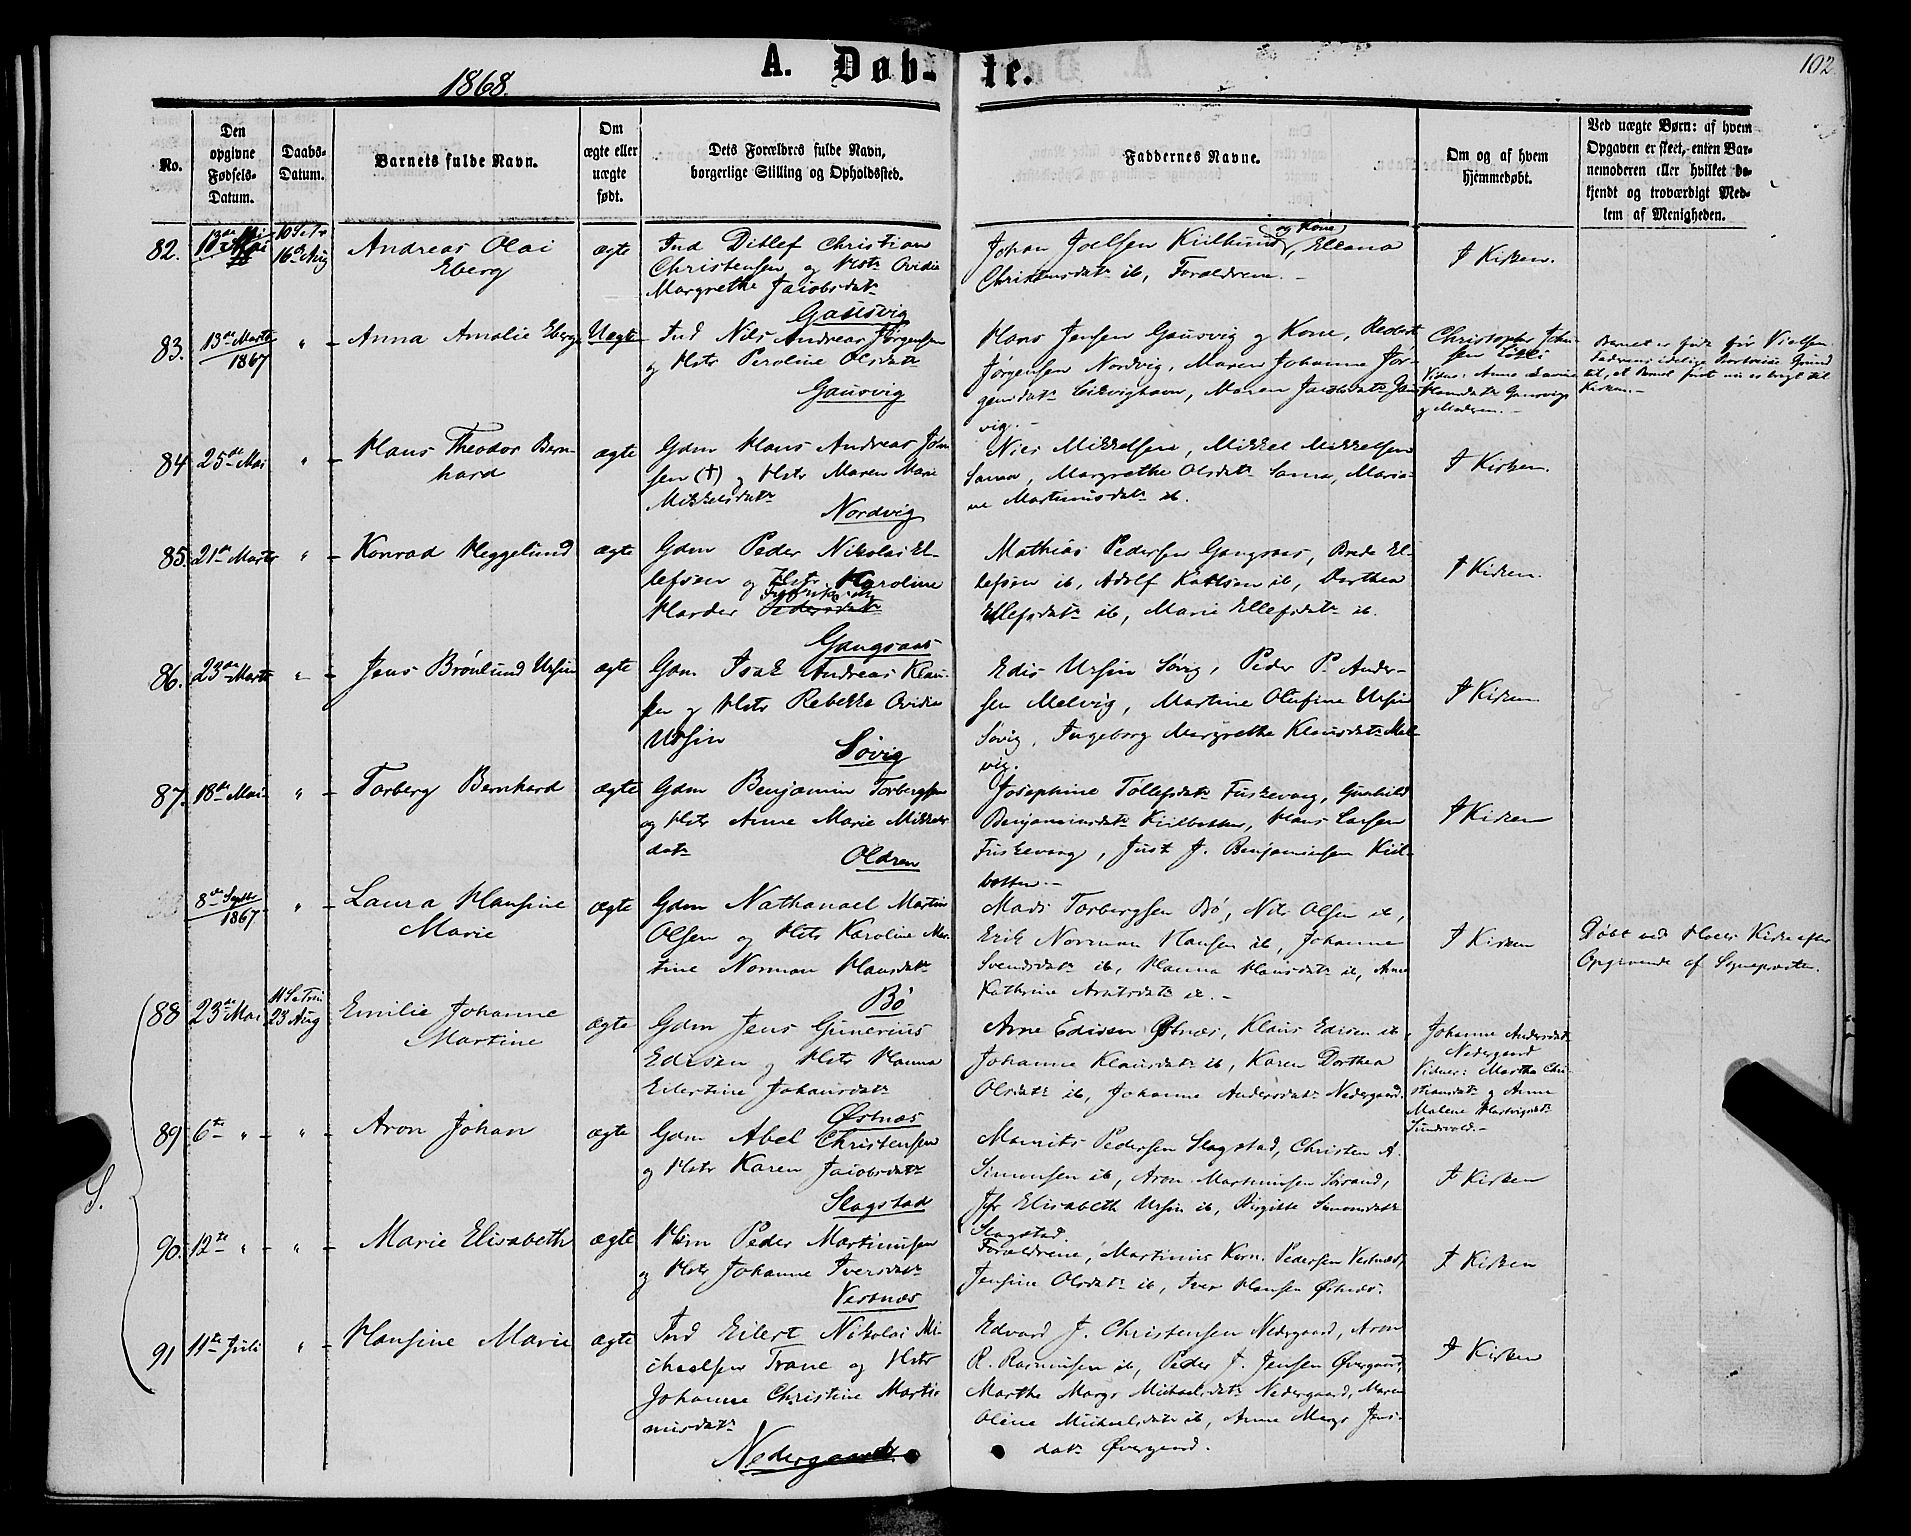 1868.
A. Døb-
te.
102
No.
Den
opgivne
Fødsels-
Datum.
Daabs-
Datum.
Barnets fulde Navn.
Om
ægte eller
uægte
født.
Dets Forældres fulde Navn,
borgerlige Stilling og Opholdssted.
Faddernes Navne.
Om og af hvem
hjemmedøbt.
Ved uægte Børn: af hvem
Opgaven er skeet, enten Bar-
nemoderen eller hvilket be-
kjendt og troværdigt Med-
lem af Menigheden.
82.
16 Aug
Andreas Olai
Eberg
ægte
Ind Ditlef Christian
Christensen og Hstr Ovidie
Margrethe Jacobsdatr
Gausvig
Johan Joelsen Kiilbund og Kone, Eleana
Christensdatr ib, Forældrene.-
I Kirken.
83.
13de Marts
1867
" -
Anna Amalie Eberg
Uægte
Ind Nils Andreas Jørgensen
og Hstr Peroline Olsdatr
Gausvig
Hans Jensen Gausvig og Kone, Redert
Jørgensen Nordvig, Maren Johanne Jør-
gensdatr Erikvighavn, Maren Jacobsdatr Gaus-
vig.-
Christopher Johan-
sen
Vidne: Anne
Hansdatr Gausvig
og Moderen.-
Barnet er født før Vielsen.
Kirken.-
84
25de Mai
" -
Hans Theodor Bern-
hard
ægte
Gdm Hans Andreas John
sen (†) og Hstr Maren Marie
Mikkelsdatr
Nordvig
Niels Mikkelsen, Mikkel Mikkelsen
Sama, Margrethe Olsdatr Sama, Maria-
ne Martinusdatr ib.
I Kirken.
85.
21de Marts
" -
Konrad Heggelund
ægte
Gdm Peder Nikolai El-
lefsen og Hstr Karoline
Harder Pedersdatr
Gangsaas
Mathias Pedersen Gangsaas, Brede El-
lefsen ib, Adolf Karlsen ib, Dorthea
Ellefsdatr ib, Marie Ellefsdatr ib.
I Kirken.
86.
23de Marts
" -
Jens Brønlund Ursin
ægte
Gdm Isak Andreas Klau-
sen og Hstr Rebekka Ovidia
Ursin
Søvig
Edis Ursin Søvig, Peder P. Ander-
sen Melvig, Martine Olufine Ursin
Søvig, Ingeborg Margrethe Klausdatr Mel-
vig.
I Kirken
87.
18de Mai
" -
Torberg Bernhard
ægte
Gdm Benjamin Torbergsen
og Hstr Anne Marie Mikkels-
datr
Oldren
Josephine Tollefsdatr Fuskevaag, Gunhild
Benjaminsdatr Kiilbotten, Hans Larsen
Fuskevaag, Just J. Benjaminsen Kiil-
botten.-
I Kirken
8de Septbr
1867
" -
Laura Hansine
Marie
ægte
Gdm Nathanael Martin
Olsen og Hstr Karoline Mar-
tine Norman Hansdatr
Bö
Mads Torbergsen Bö, Nils Olsen ib,
Erik Norman Hansen ib, Johanne
Svendsdatr ib, Hanna Hansdatr ib, Ane
Kathrine Arntsdatr ib.-
I Kirken
Døbt ved Hols Kirke efter
Opgivende af Sognepræsten.
S.
88
23de Mai
11 S e Trin
23 Aug
Emilie Johanne
Martine
ægte
Gdm Jens Gunerius
Edisen og Hstr Hanna
Eilertine Johansdatr
Østnæs
Arne Edisen Østnæs, Klaus Edisen ib,
Johanne Klausdatr ib, Karen Dorthea
Olsdatr ib, Johanne Andersdatr Nedergaard.
Johanne Andersdatr
Nedergaard
Vidner: Martha Chri-
stiansdatr og Anne
Malene Hartvigsdatr
Sundsvold.-
89
6te " -
" -
Aron Johan
ægte
Gdm Abel Christensen
og Hstr Karen Jacobsdatr
Slagstad
Mamits Pedersen Slagstad, Christen A.
Simonsen ib, Aron Martinusen Sørsand,
Jfr Elisabeth Ursin ib, Birgitte Simonsdatr
Slagstad.
I Kirken
90.
12te " -
" -
Marie Elisabeth
ægte
Hsm Peder Martinusen
og Hstr Johanne Iversdatr
Vestnæs
Forældrene, Martinus Korn. Pedersen Vestnæs,
Jensine Olsdatr ib, Iver Hansen Østnæs.
I Kirken
91
11te Juli
" -
Hansine Marie
ægte
Ind Eilert Nikolai Mi-
chaelsen Trane og Hstr
Johanne Christine Marti-
nusdatr
Nedergaard.
Edvard J. Christensen Nedergaard, Aron
R. Rasmusen ib, Peder J. Jensen Øvergaard,
Marthe Margr Michaelsdatr Nedergaard, Maren
Oline Michaelsdatr ib, Anne Margr Jens-
datr Øvergaard.
I Kirken